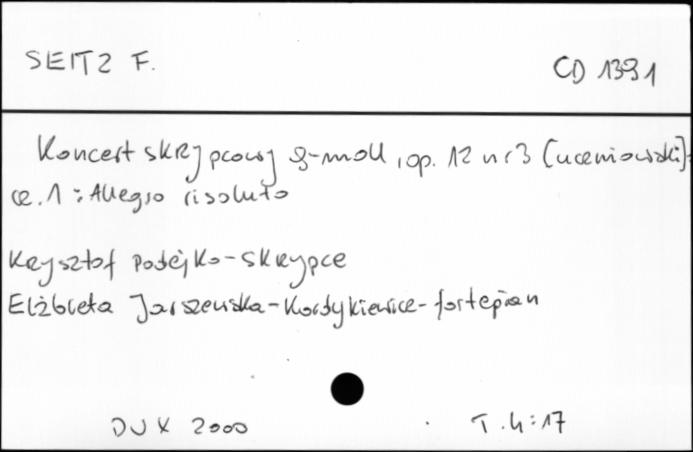 SEITZ F.
CD 1391
Koncert skrzypcowy g-moll, op. 12 nr 3 [uczniowski]:
cz. 1: Allegro risoluto
Krzysztof Podejko - skrzypce
Elżbieta Jarszewska-Kordykiewicz - fortepian
DUX 2000
T. 4:17